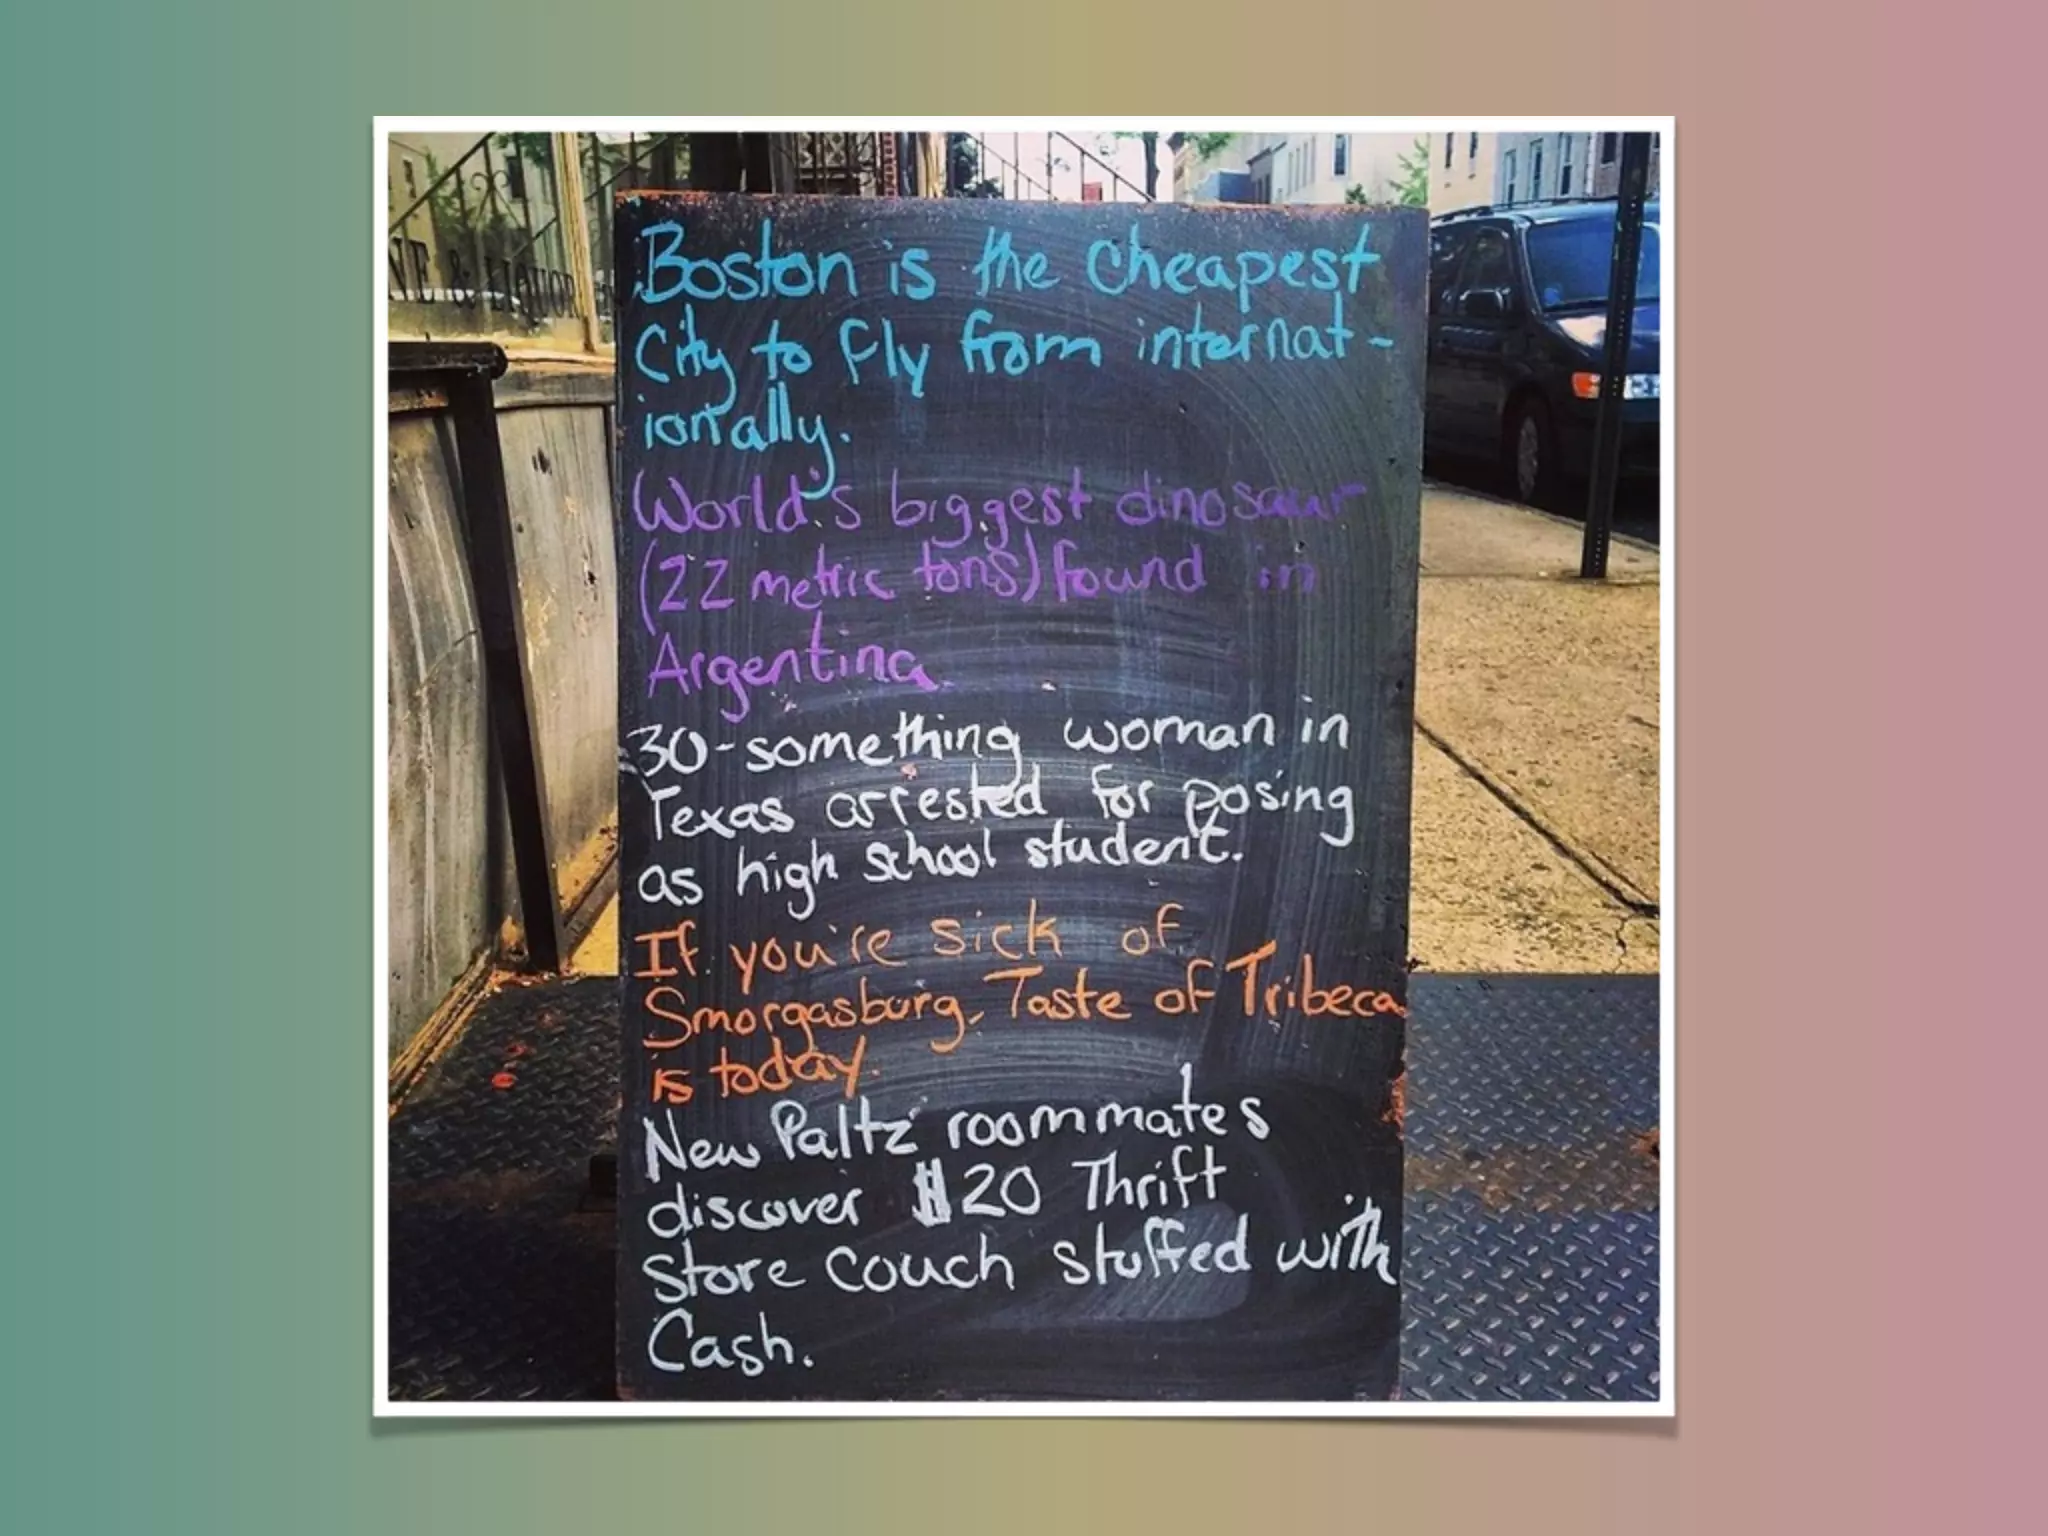 NE & LIQUOR
Boston is the Cheapest
City to fly from internat-
ionally.
World's biggest dinosaur
(22 metric tons) found in
Argentina.
30-something woman in
Texas arrested for posing
as high school student.
If you're sick of
Smorgasburg, Taste of Tribeca
is today.
New Paltz roommates
discover $20 Thrift
Store Couch stuffed with
Cash.